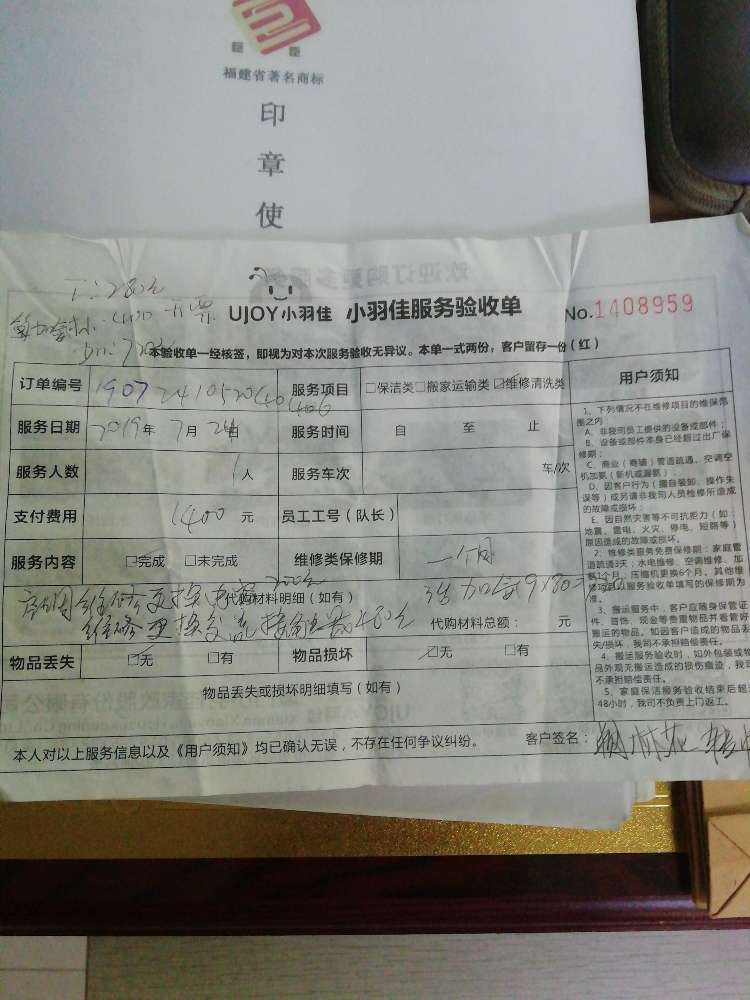 臣 臣
福建省著名商标
印
章
使
欢迎订购更多服务
UJOY小羽佳 小羽佳服务验收单 No.1408959
本验收单一经核签，即视为对本次服务验收无异议。本单一式两份，客户留存一份（红）
订单编号 服务项目 □保洁类□搬家运输类☑维修清洗类
服务日期 2019年 7月 24日 服务时间 自 至 止
服务人数 1人 服务车次 车/次
支付费用 1400 元 员工工号（队长）
服务内容 ☑完成 □未完成 维修类保修期 一个月
代购材料明细（如有）
维修更换交流接触器 480元 代购材料总额： 元
物品丢失 ☑无 □有 物品损坏 ☑无 □有
物品丢失或损坏明细填写（如有）
本人对以上服务信息以及《用户须知》均已确认无误，不存在任何争议纠纷。 客户签名：
用户须知
1、下列情况不在维修项目的维保范
围之内
A、非我司员工提供的设备或部件；
B、设备或部件本身已经超过出厂保
修期；
C、商业（商铺）管道疏通、空调空
机加氨（新机或漏氨）；
D、因客户行为（擅自装卸、操作失
误等）或另请非我司人员检修所造成
的故障或损坏；
E、因自然灾害等不可抗拒力（如：
地震、雷电、火灾、停电、短路等）
原因造成的故障或损坏。
2、维修类服务免费保修期：家庭管
道疏通3天；水电维修、空调维修、加
氨1个月，压缩机更换6个月。其他维
修项目以服务验收单填写的保修期为
准。
3、搬运服务中，客户应随身保管证
件、首饰、现金等贵重物品并看管好
搬运的物品。如因客户造成的物品丢
失/损坏，我司不承担赔偿责任。
4、搬运服务验收时，如外包装或物
品外观无搬运造成的损伤痕迹，我司
不承担赔偿责任。
5、家庭保洁服务验收结束后超过
48小时，我司不负责上门返工。